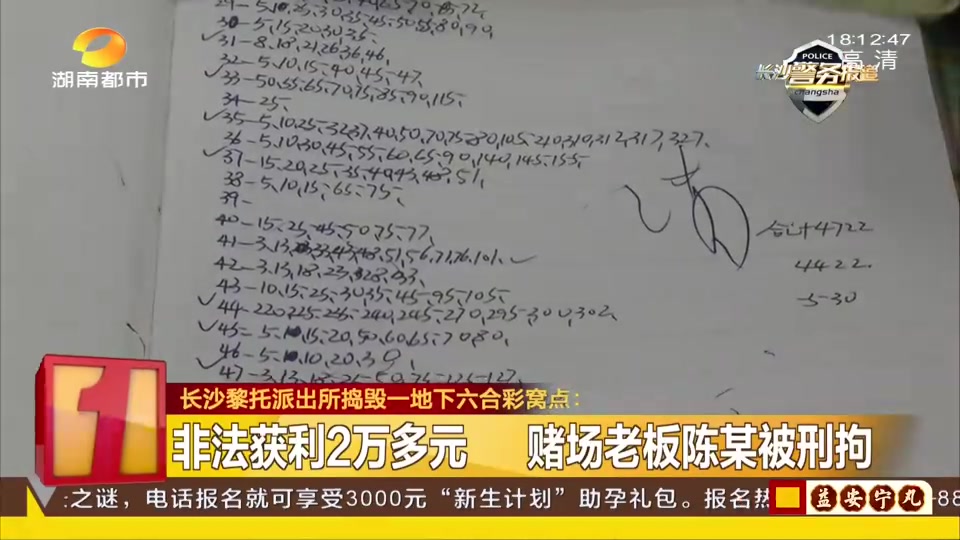 湖南都市
18:12:47
高清
POLICE
长沙警务报道
changsha
30-5,15,20,30,35,
31-8,18,21,26,36,46,
32-5,10,15,40,45,47,
33-50,55,65,70,75,85,90,115,
34-25,
35-5,10,25,32,37,40,50,70,75,80,105,210,310,312,317,327,
36-5,10,30,45,55,60,65,90,140,145,155,
37-15,20,25,35,40,43,48,51,
38-5,10,15,65,75,
39-
40-15,25,45,50,75,77,
42-3,13,18,23,28,33,
43-10,15,25,30,35,45,95,105,
44-220,225,235,240,245,270,295,300,302,
45-5,10,15,20,50,60,65,70,80,
46-5,10,20,30,
合计4722
4422
-530
1
长沙黎托派出所捣毁一地下六合彩窝点：
非法获利2万多元 赌场老板陈某被刑拘
之谜，电话报名就可享受3000元“新生计划”助孕礼包。报名热
益安宁丸
-88